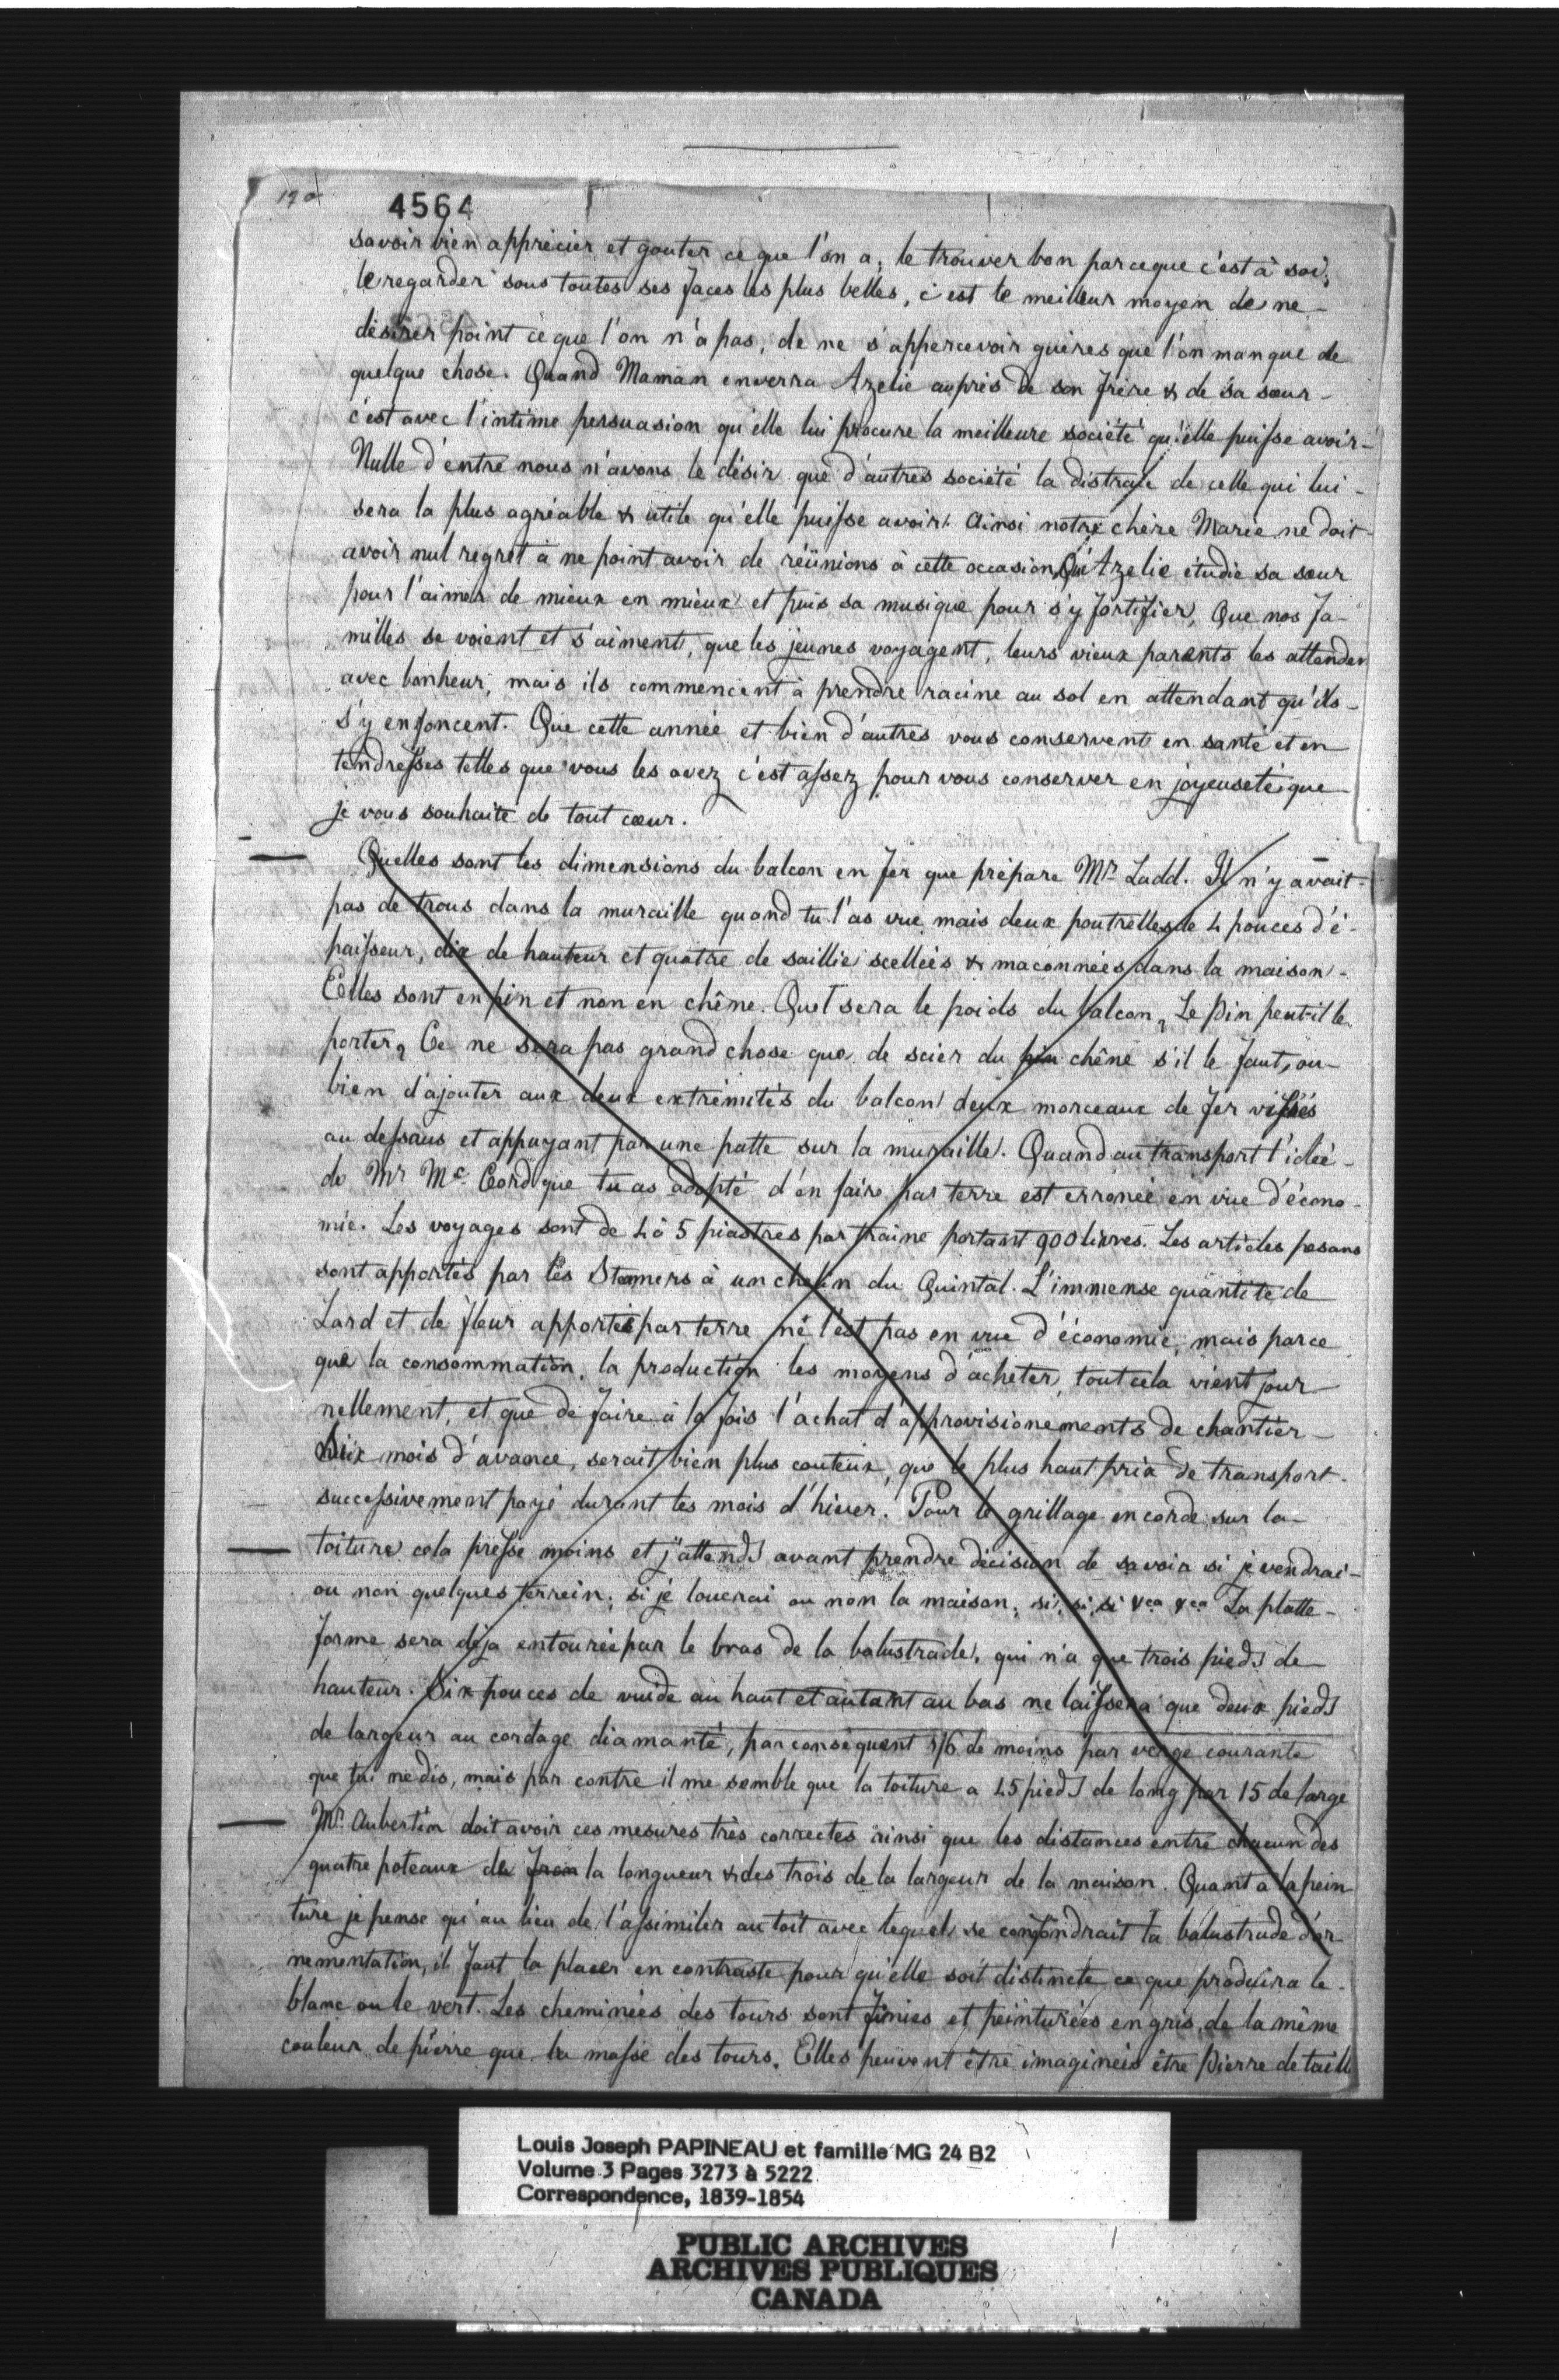 4564
savoir bien apprécier et gouter ce que l'on a, le trouver bon parceque c'est à soi,
le regarder sous toutes ses faces les plus belles, c'est le meilleur moyen de ne
désirer point ce que l'on n'a pas, de ne s'appercevoir guères que l'on manque de
quelque chose. Quand Maman enverra Azelie auprès de son frère & de sa sœur
c'est avec l'intime persuasion qu'elle lui procure la meilleure société qu'elle puisse avoir
Nulle d'entre nous n'avons le désir que d'autres société la distraie de celle qui lui
sera la plus agréable & utile qu'elle puisse avoir. Ainsi notre chère Marie ne doit
avoir nul regret à ne point avoir de réunions à cette occasion, Qu'Azelie étudie sa sœur
pour l'aimer de mieux en mieux et puis sa musique pour s'y fortifier, Que nos fa-
milles se voient et s'aiment, que les jeunes voyagent, leurs vieux parents les attenden
avec bonheur, mais ils commencent à prendre racine au sol en attendant qu'ils
s'y enfoncent. Que cette année et bien d'autres vous conservent en santé et en
tendresses telles que vous les avez c'est assez pour vous conserver en joyeuseté que
je vous souhaite de tout cœur.
Quelles sont les dimensions du balcon en fer que prépare Mr Ladd. Il n'y avait
pas de trous dans la muraille quand tu l'as vue mais deux poutrelles de 4 pouces d'é-
paisseur, dix de hauteur et quatre de saillie scellées & maconnées dans la maison.
Elles sont en pin et non en chêne. Quel sera le poids du balcon, Le Pin peut-il le
porter, Ce ne sera pas grand chose que de scier du pin chêne s'il le faut, ou
bien d'ajouter aux deux extrémités du balcon deux morceaux de fer vissés
au dessous et appuyant par une patte sur la muraille. Quand au transport l'idée
de Mr Mc Cord que tu as adopté d'en faire par terre est erronée en vue d'écono-
mie. Les voyages sont de 4 à 5 piastres par traine portant 900 livres. Les articles pesans
sont apportés par les Steamers à un chelin du Quintal. L'immense quantité de
Lard et de fleur apportés par terre ne l'est pas en vue d'économie, mais parce
que la consommation, la production les moyens d'acheter, tout cela vient jour
nellement, et que de faire à la fois l'achat d'approvisionements de chantier
dix mois d'avance, serait bien plus couteux, que le plus haut prix de transport
successivement payé durant les mois d'hiver. Pour le grillage en corde sur la
toiture cela presse moins et j'attends avant prendre décision de savoir si je vendrai
ou non quelques terrein, si je louerai ou non la maison, si, si, si &ca &ca La platte-
forme sera déja entourée par le bras de la balustrade, qui n'a que trois pieds de
hauteur. Six pouces de vuide au haut et autant au bas ne laissera que deux pieds
de largeur au cordage diamanté, par conséquent 1/6 de moins par verge courante
que tu ne dis, mais par contre il me semble que la toiture a 45 pieds de long par 15 de large
Mr Aubertin doit avoir ces mesures très correctes ainsi que les distances entre chacun des
quatre poteaux de la longueur & des trois de la largeur de la maison. Quant à la pein
ture je pense qu'au lieu de l'assimiler au toit avec lequel se confondrait la balustrade d'or
nementation, il faut la placer en contraste pour qu'elle soit distincte ce que produira le
blanc ou le vert. Les cheminées des tours sont finies et peinturées en gris, de la même
couleur de pierre que la masse des tours. Elles peuvent être imaginées être Pierre de taille
Louis Joseph PAPINEAU et famille MG 24 B2
Volume 3 Pages 3273 à 5222
Correspondence, 1839-1854
PUBLIC ARCHIVES
ARCHIVES PUBLIQUES
CANADA